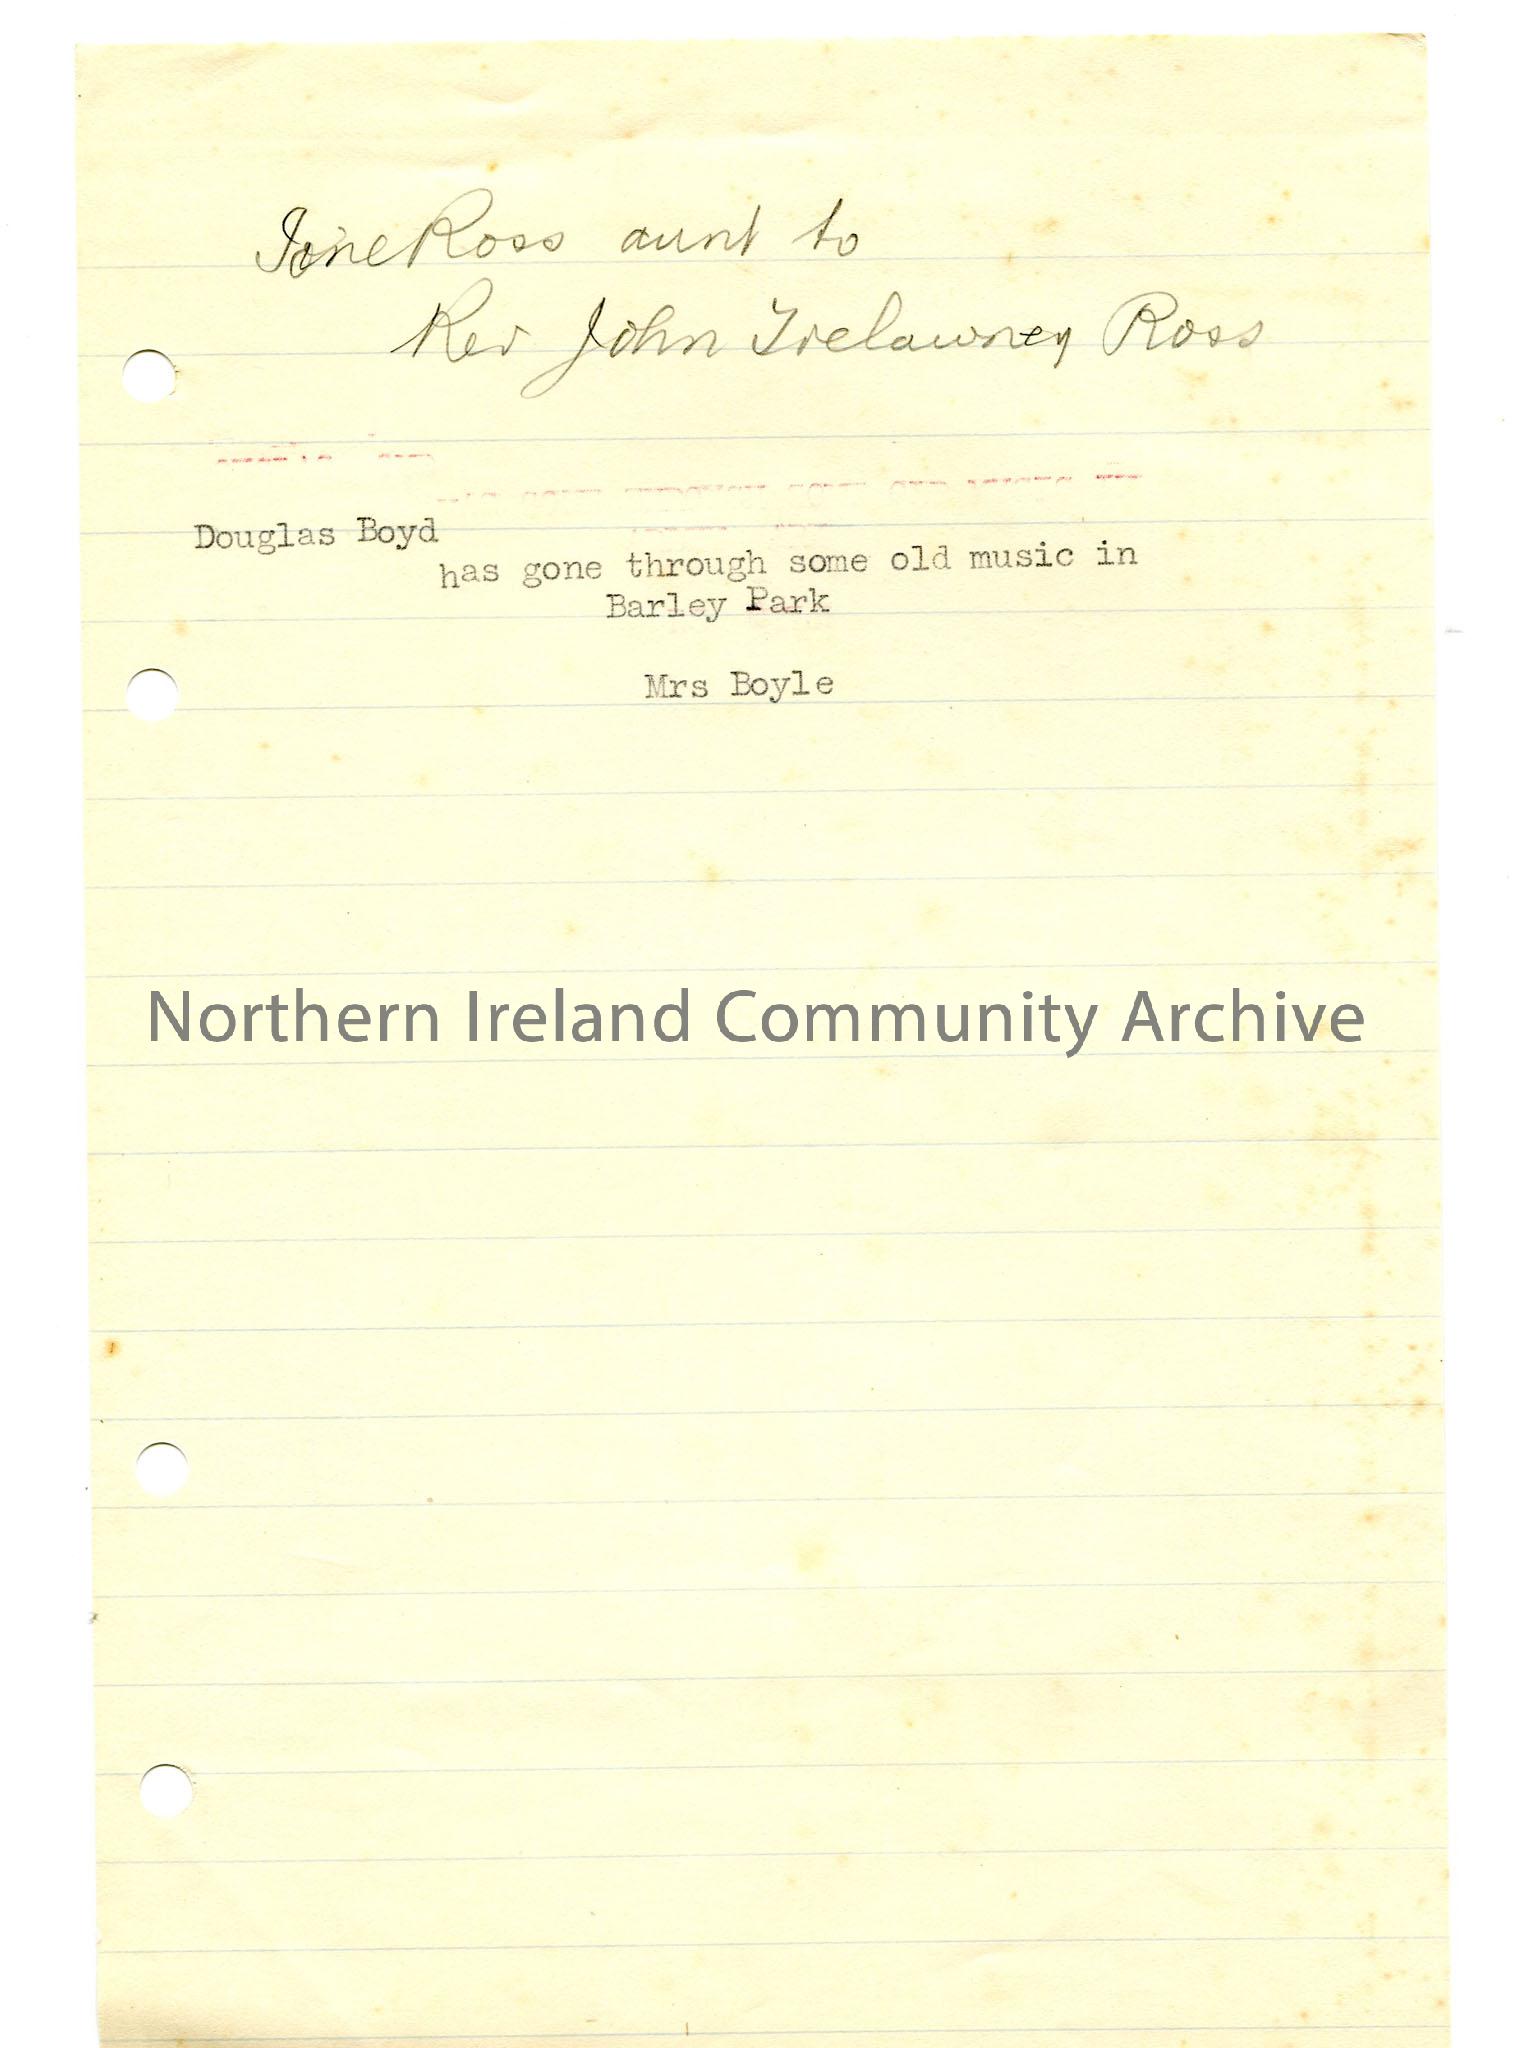 Jane Ross aunt to
Rev John Trelawney Ross
Douglas Boyd
has gone through some old music in
Barley Park
Mrs Boyle
Northern Ireland Community Archive